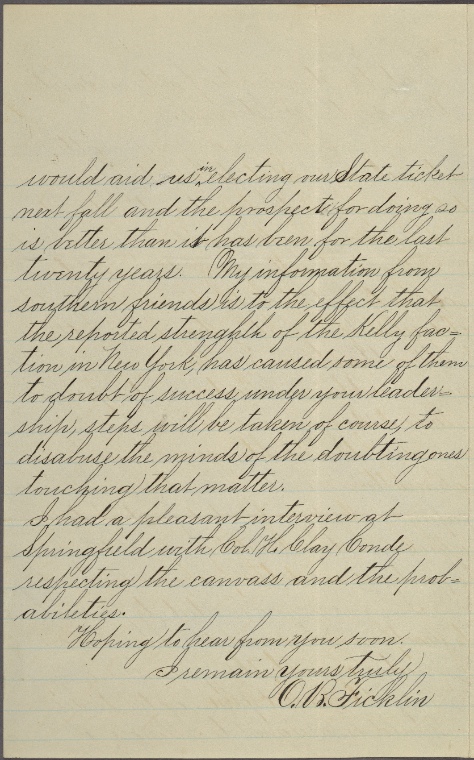 would aid us in electing our State ticket
next fall and the prospect for doing so
is better than it has been for the last
twenty years. My information from
southern friends is to the effect that
the reported strength of the Kelly fac=
tion in New York, has caused some of them
to doubt of success under your leader=
ship, steps will be taken of course, to
disabuse the minds of the doubting ones
touching that matter.
I had a pleasant interview at
Springfield with Col. H. Clay Conde
respecting the canvass and the prob=
abilities.
Hoping to hear from you soon.
I remain yours truly
O. B. Ficklin